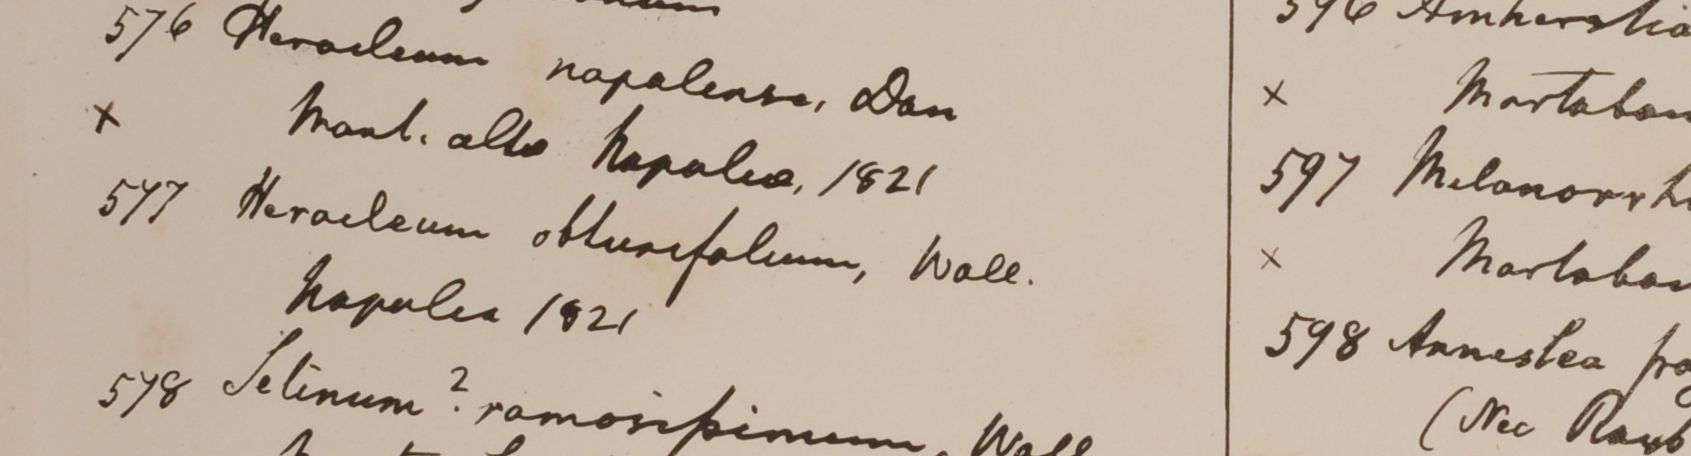 576 Heracleum napalense, Don
x Mont. alto Napalia, 1821
577 Heracleum obtusifolium, Wall.
Napalia 1821
578 Selinum? ramosissimum, Wall
596 Amherstia
x Martaban
597 Melanorrh
x Martaban
598 Anneslea fra
(Nec Roxb